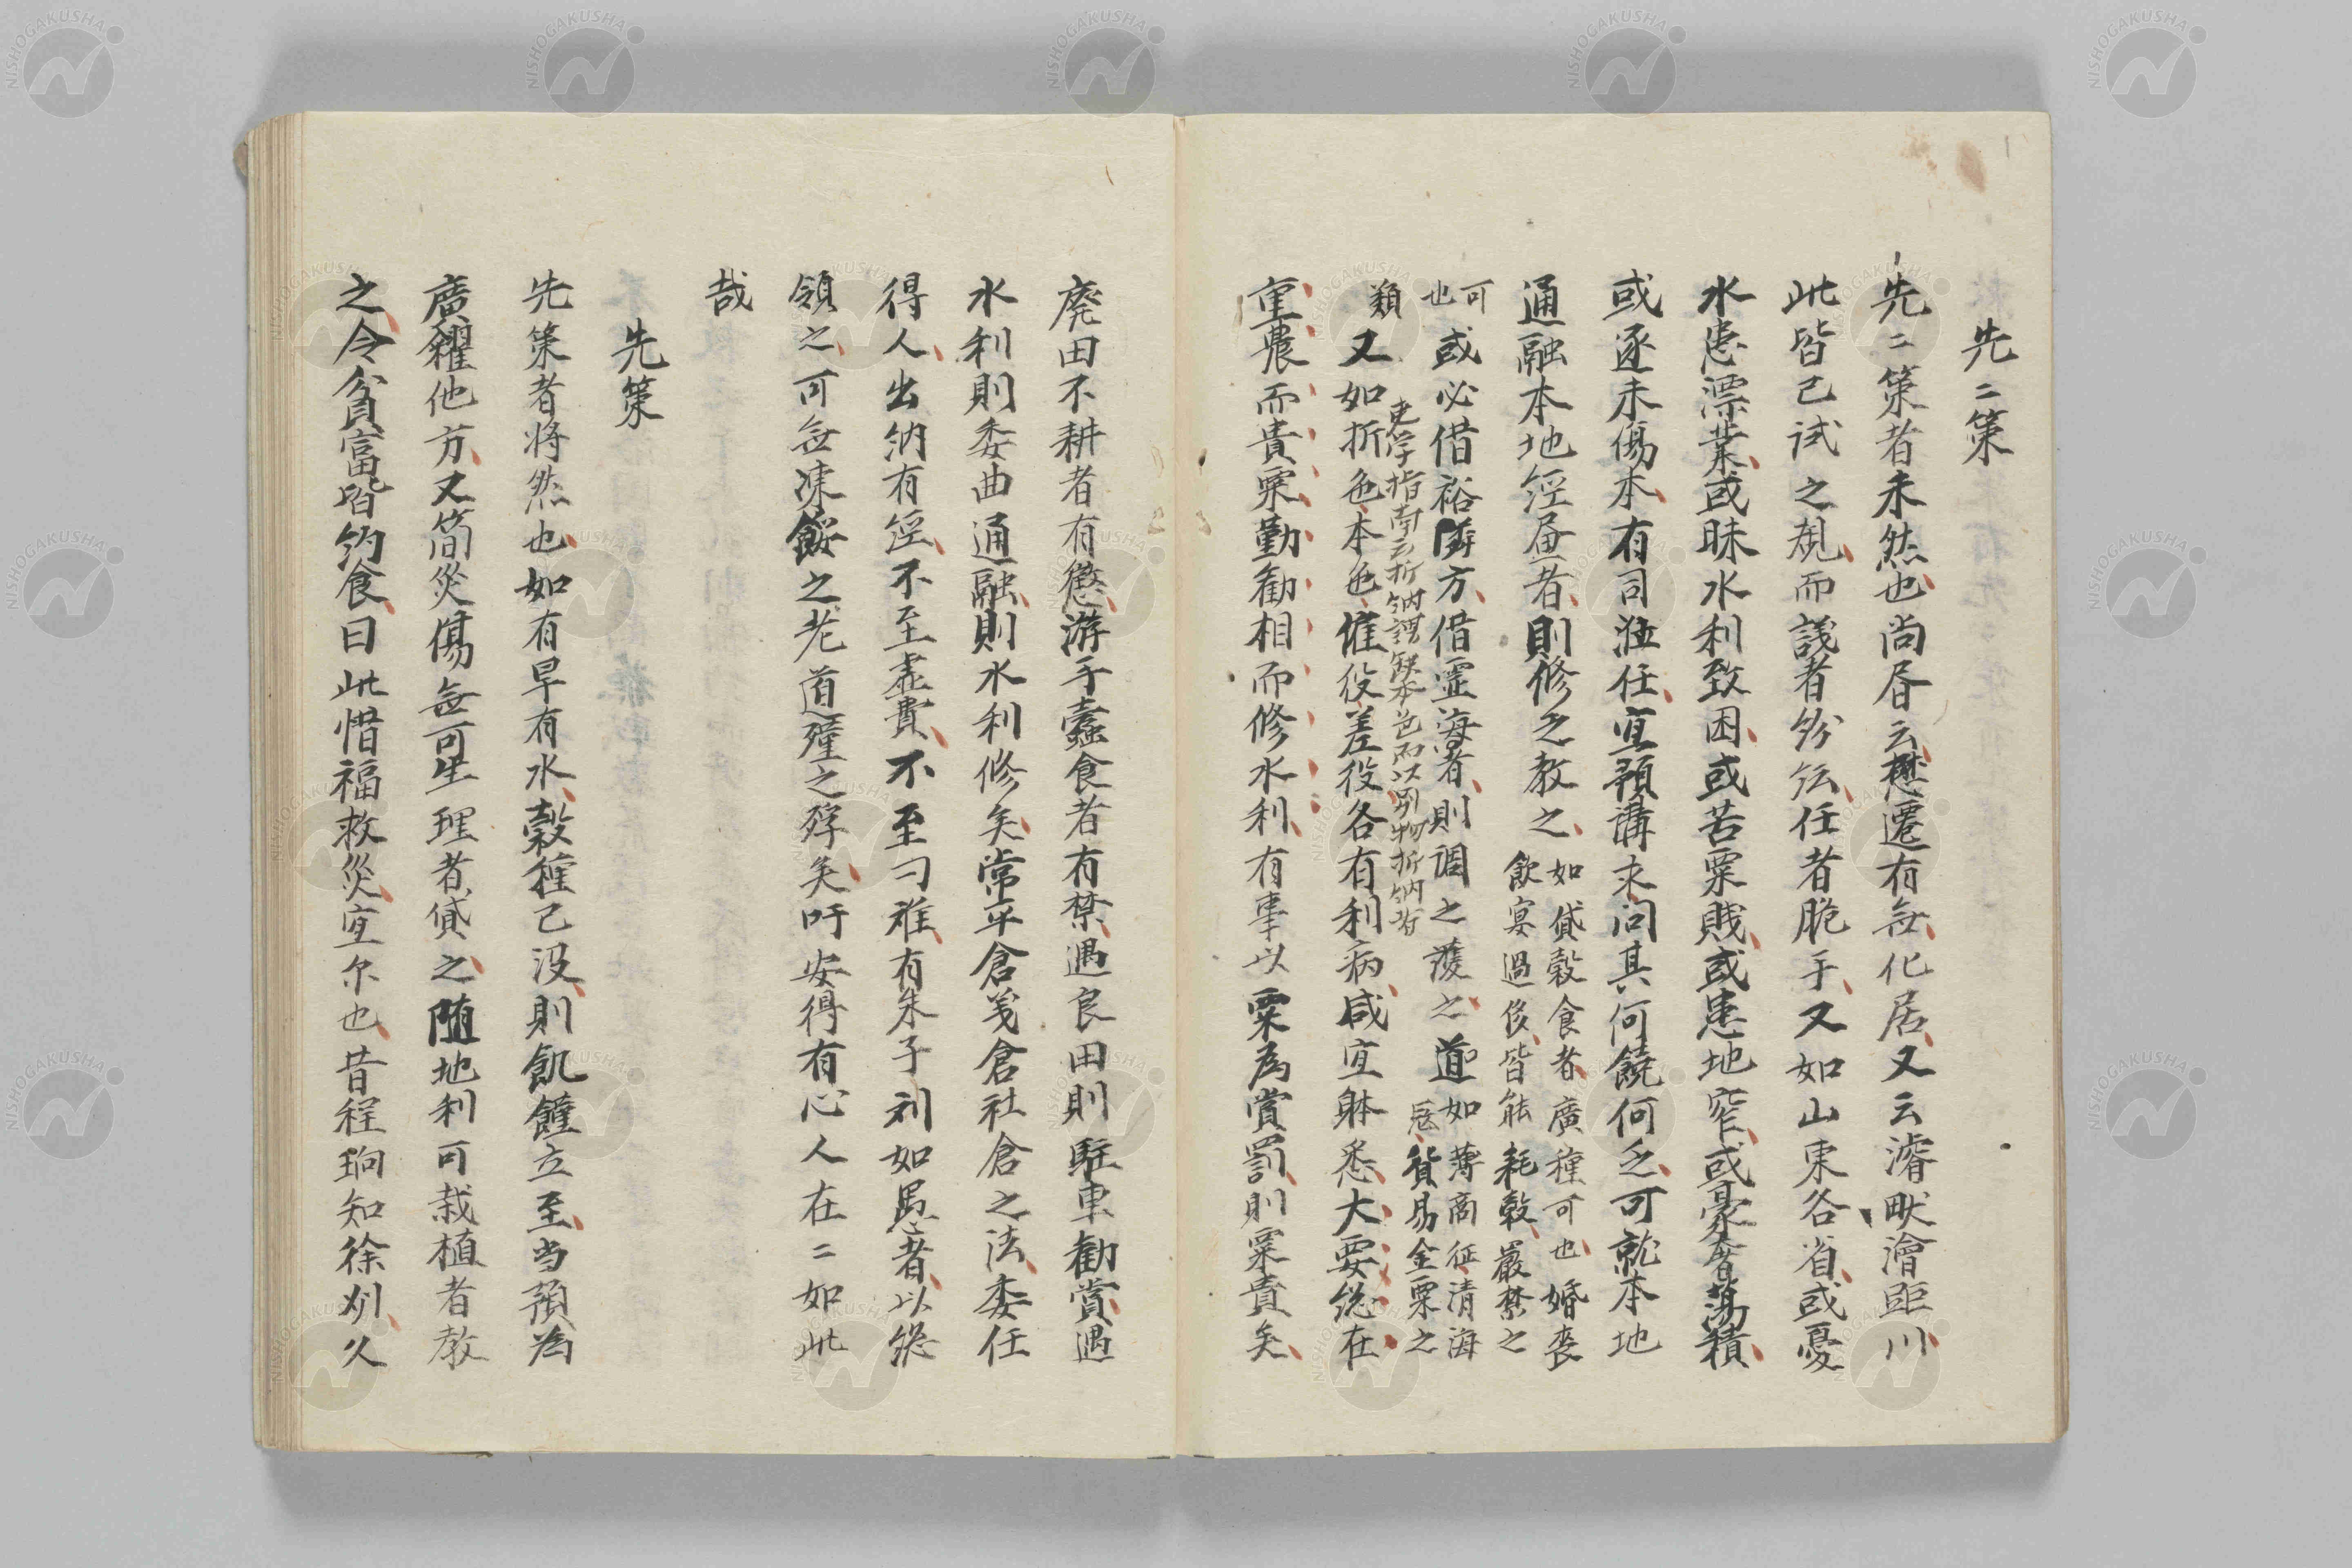 先二策
先二策者未然也尚𣆀云懋遷有無化居又云濬畎澮距川
此皆已试之規而議者紛紜任者脆手又如山東各省或憂
水患漂業或昧水利致困或苦粟賤或患地窄或豪奢蕩積
或逐末傷本有司涖任宜預講求问其何饒何乏可就本地
通融本地經𡳳者則修之教之
如貸穀食者廣種可也婚喪
飲宴過侈皆能耗穀嚴禁之
可
也
或必借裕隣方借霊海者則调之護之道
如薄商征清海
寇貨易金粟之
類
吏学指南云折納謂缺本色而以別物折納者
又如折色本色催役差役各有利病咸宜躰悉大要総在
重農而貴粟勤勧相而修水利有事以粟為賞罰則粟貴矣
廃田不耕者有懲游手蠹食者有禁遇良田則駐車勧賞遇
水利則委曲通融則水利修矣常平倉義倉社倉之法委任
得人出納有経不至虚費不至刁难有朱子刘如愚者以総
領之可無凍餒之老道殣之殍矣吁安得有心人在二如此
哉
先策
先策者将然也如有旱有水穀種已没則飢饉立至当預為
廣糴他方又简災傷無可生理者貸之随地利可栽植者教
之令貧富皆約食曰此惜福救災宜尔也昔程珦知徐州久
NISHOGAKUSHA